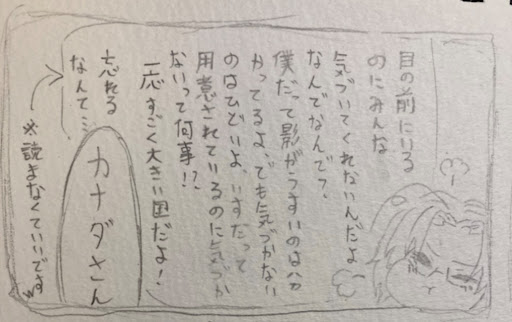 目の前にいる
のにみんな
気づいてくれないんだよ
なんでなんで?
僕だって影がうすいのは分
かってるよ、でも気づかない
のはひどいよ、いすだって
用意されているのに気づか
ないって何事!?
一応すごく大きい国だよ!
忘れる
なんて…
カナダさん
※読まなくていいです※